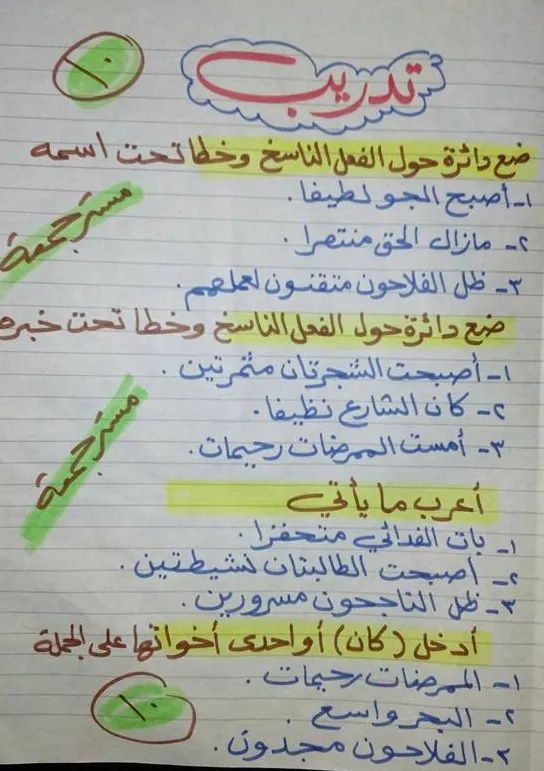 ١٠
تدريب
ضع دائرة حول الفعل الناسخ وخطا تحت اسمه
١- أصبح الجو لطيفا.
٢- مازال الحق منتصرا.
٣- ظل الفلاحون متقنون لعملهم.
مستر جمعة
ضع دائرة حول الفعل الناسخ وخطا تحت خبره
١- أصبحت الشجرتان مثمرتين.
٢- كان الشارع نظيفا.
٣- أمست الممرضات رحيمات.
مستر جمعة
أعرب ما يأتي
١- بات الفدائي متحفزا.
٢- أصبحت الطالبتان نشيطتين.
٣- ظل الناجحون مسرورين.
أدخل (كان) أو احدى أخواتها على الجملة
١- الممرضات رحيمات.
٢- البحر واسع.
٣- الفلاحون مجدون.
١٠